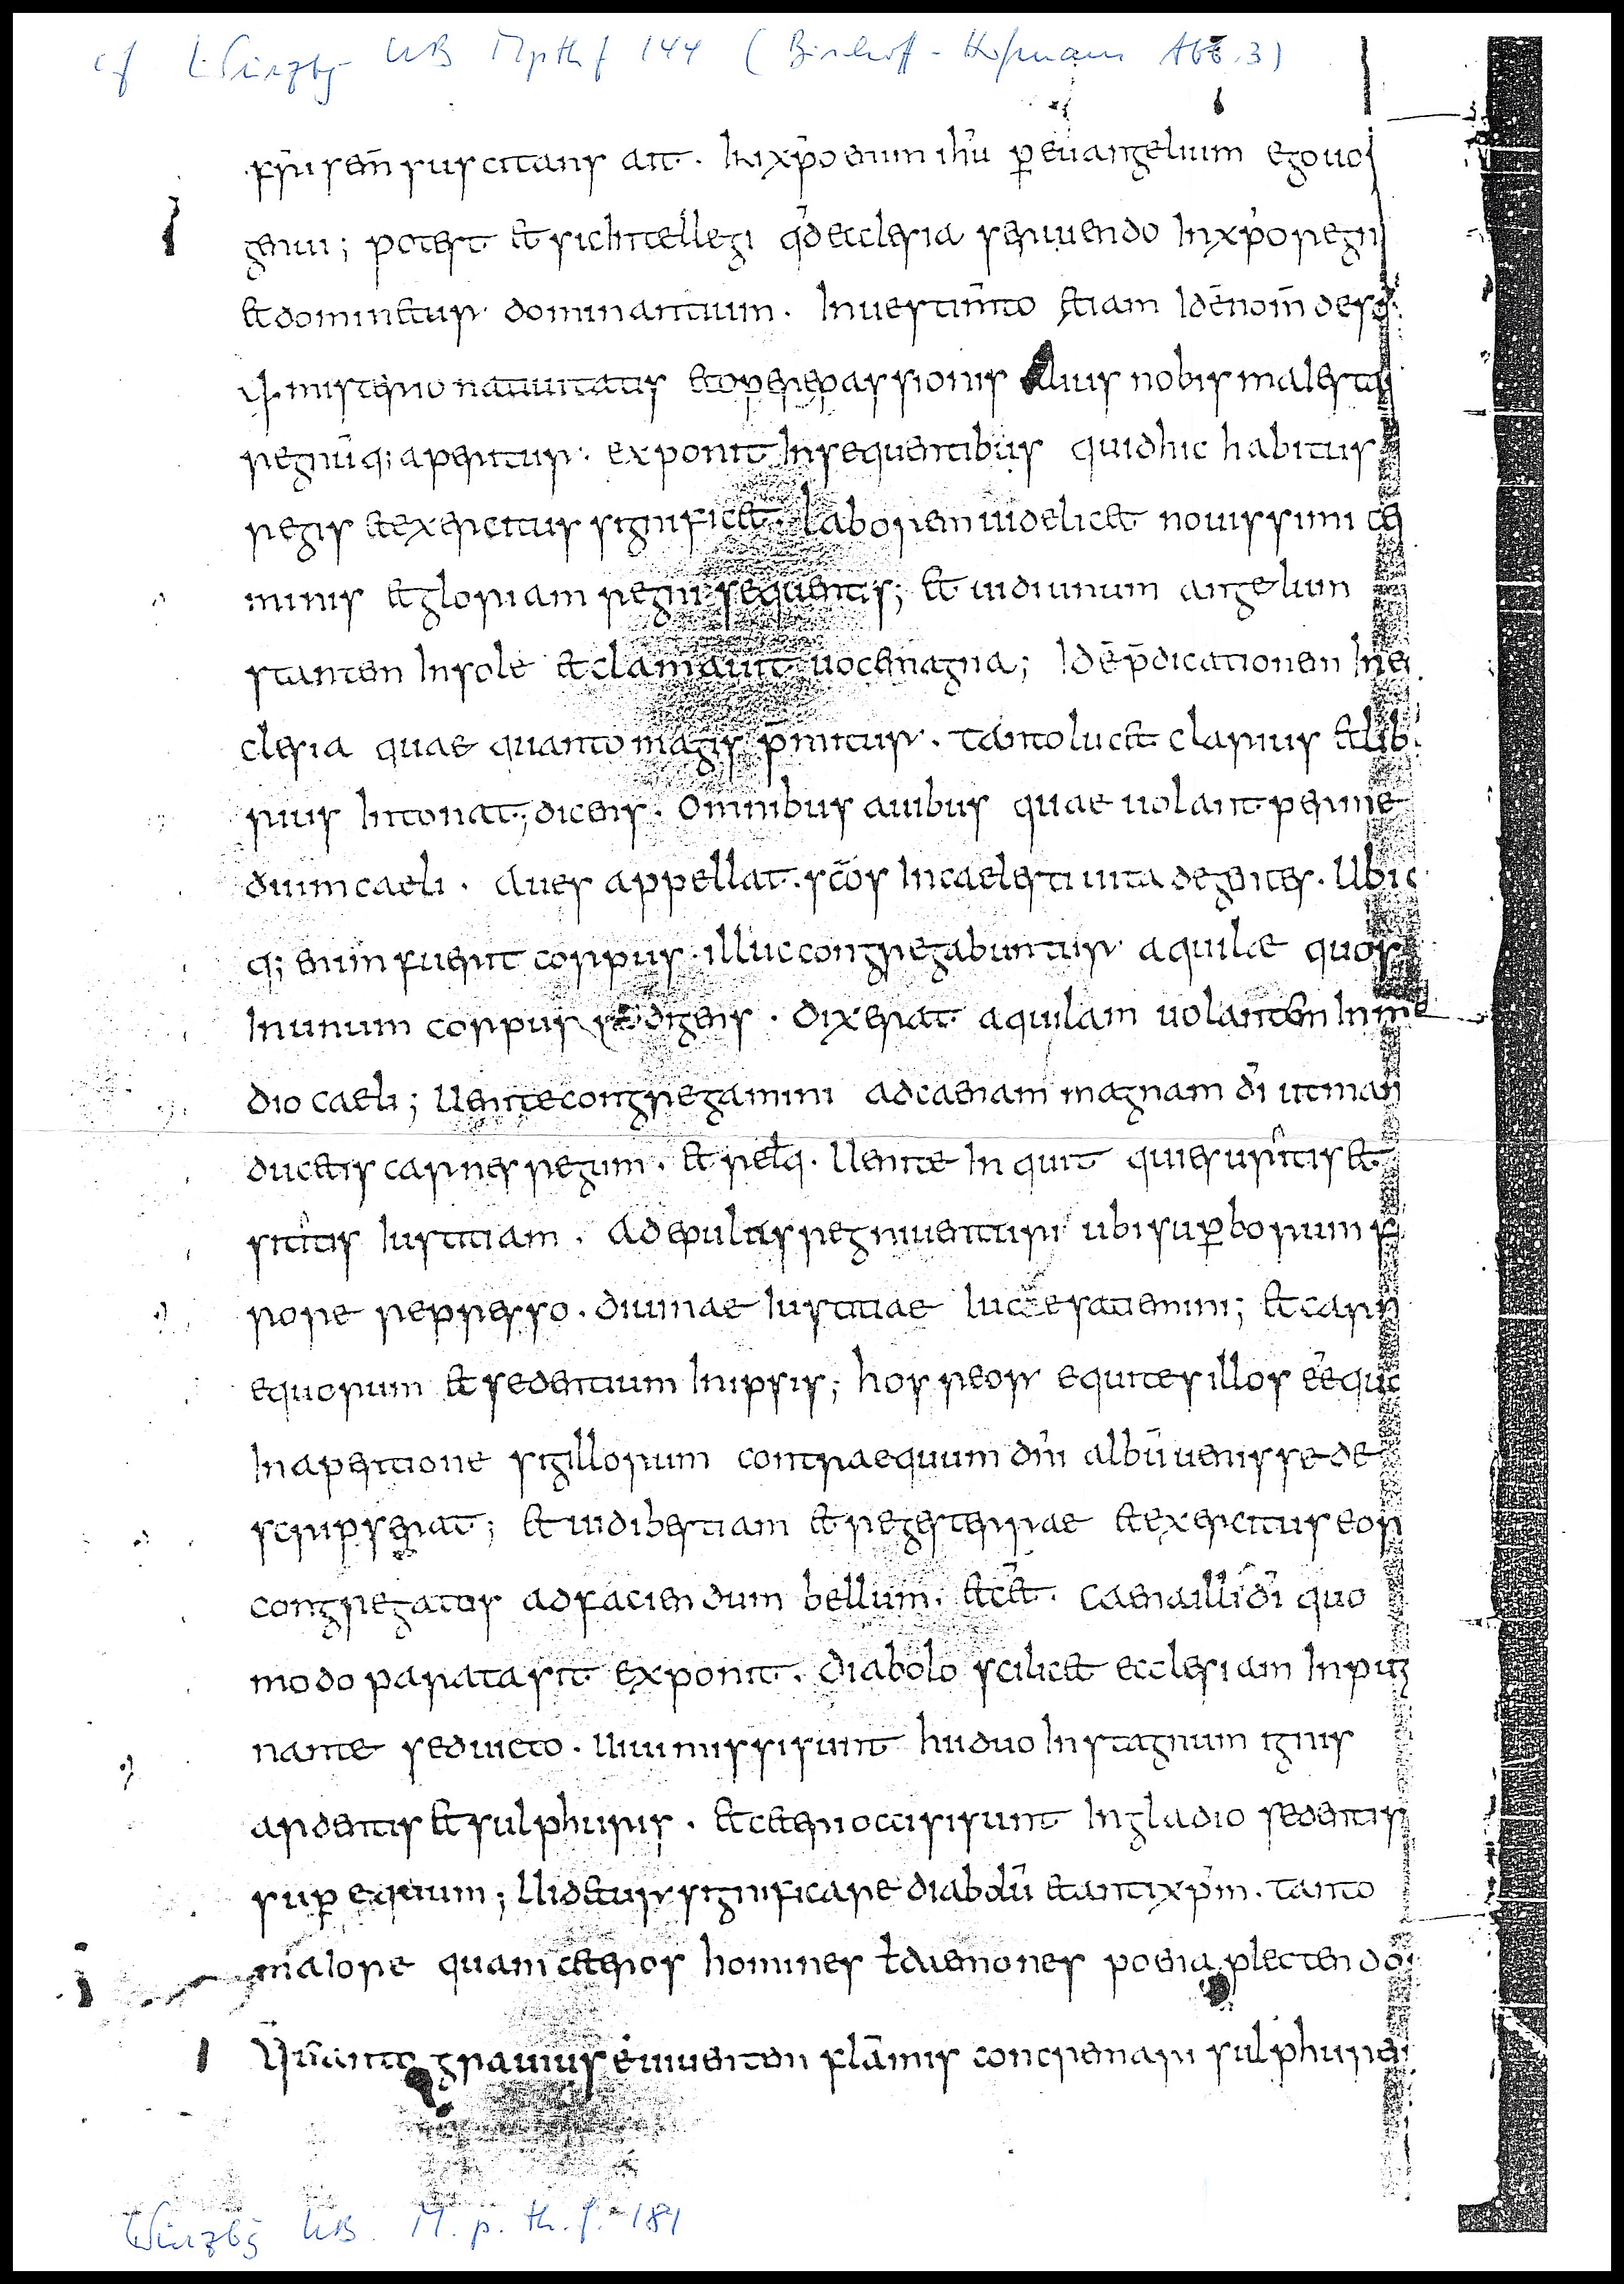 cf Würzbg UB M p th f 144 (Bischoff - Hofmann Abb. 3)
frū semꝫ suscitans ait. In xp̄o enim ihū ꝑ euangelium ego uos
genui; potest et sic intellegi qd̄ ecclesia seruiendo in xp̄o regn
et dominetur dominantium. In uestim̄to etiam idē nom̄ desc
misterio natiuitatis et opere passionis eius nobis maiestas
regnūq; aperitur. exponit in sequentibus quid hic habitus
regis et exercitus significet. laborem uidelicet nouissimi cer
minis et gloriam regni sequentis; et uidi unum angelum
stantem in sole et clamauit uoce magna; Idē p̄dicationem in ec
clesia quae quanto magis p̄mitur. tanto lucet clarius et lib
rius intonat; dicens. Omnibus auibus quae uolant per me
dium caeli. Aues appellat. scōs in caelesti uita degentes. Ubic
q; enim fuerit corpus. illuc congregabuntur aquilae quos
in unum corpus redigens. dixerat aquilam uolantem in me
dio caeli; Uenite congregamini ad caenam magnam dī ut man
ducetis carnes regum. et relq. Uenite inquit qui esuritis et
sititis iustitiam. Ad epulas regni uenturi ubi suꝑborum fu
rore represso. diuinae iustitiae luce satiemini; et carn
equorum et sedentium in ipsis; hos reor equites illos eēquo
In apertione sigillorum contra equum dn̄i albū uenisse de
scripserat; et uidi bestiam et reges terrae et exercitus eor
congregatos ad faciendum bellum. et cēt. Caena illi dī quo
modo parata sit exponit. diabolo scilicet ecclesiam inpug
nante se deuicto. Uiui missi sunt hii duo in stagnum ignis
ardentis et sulphuris. et ceteri occisi sunt in gladio sedentis
suꝑ equum; Uidetur significare diabolū et antixp̄m. tanto
maiore quam ceteros homines ł daemones poena plectendos
quanto grauius ē uiuentem flāmis concremari sulphureis
Würzbg UB. M. p. th. f. 181